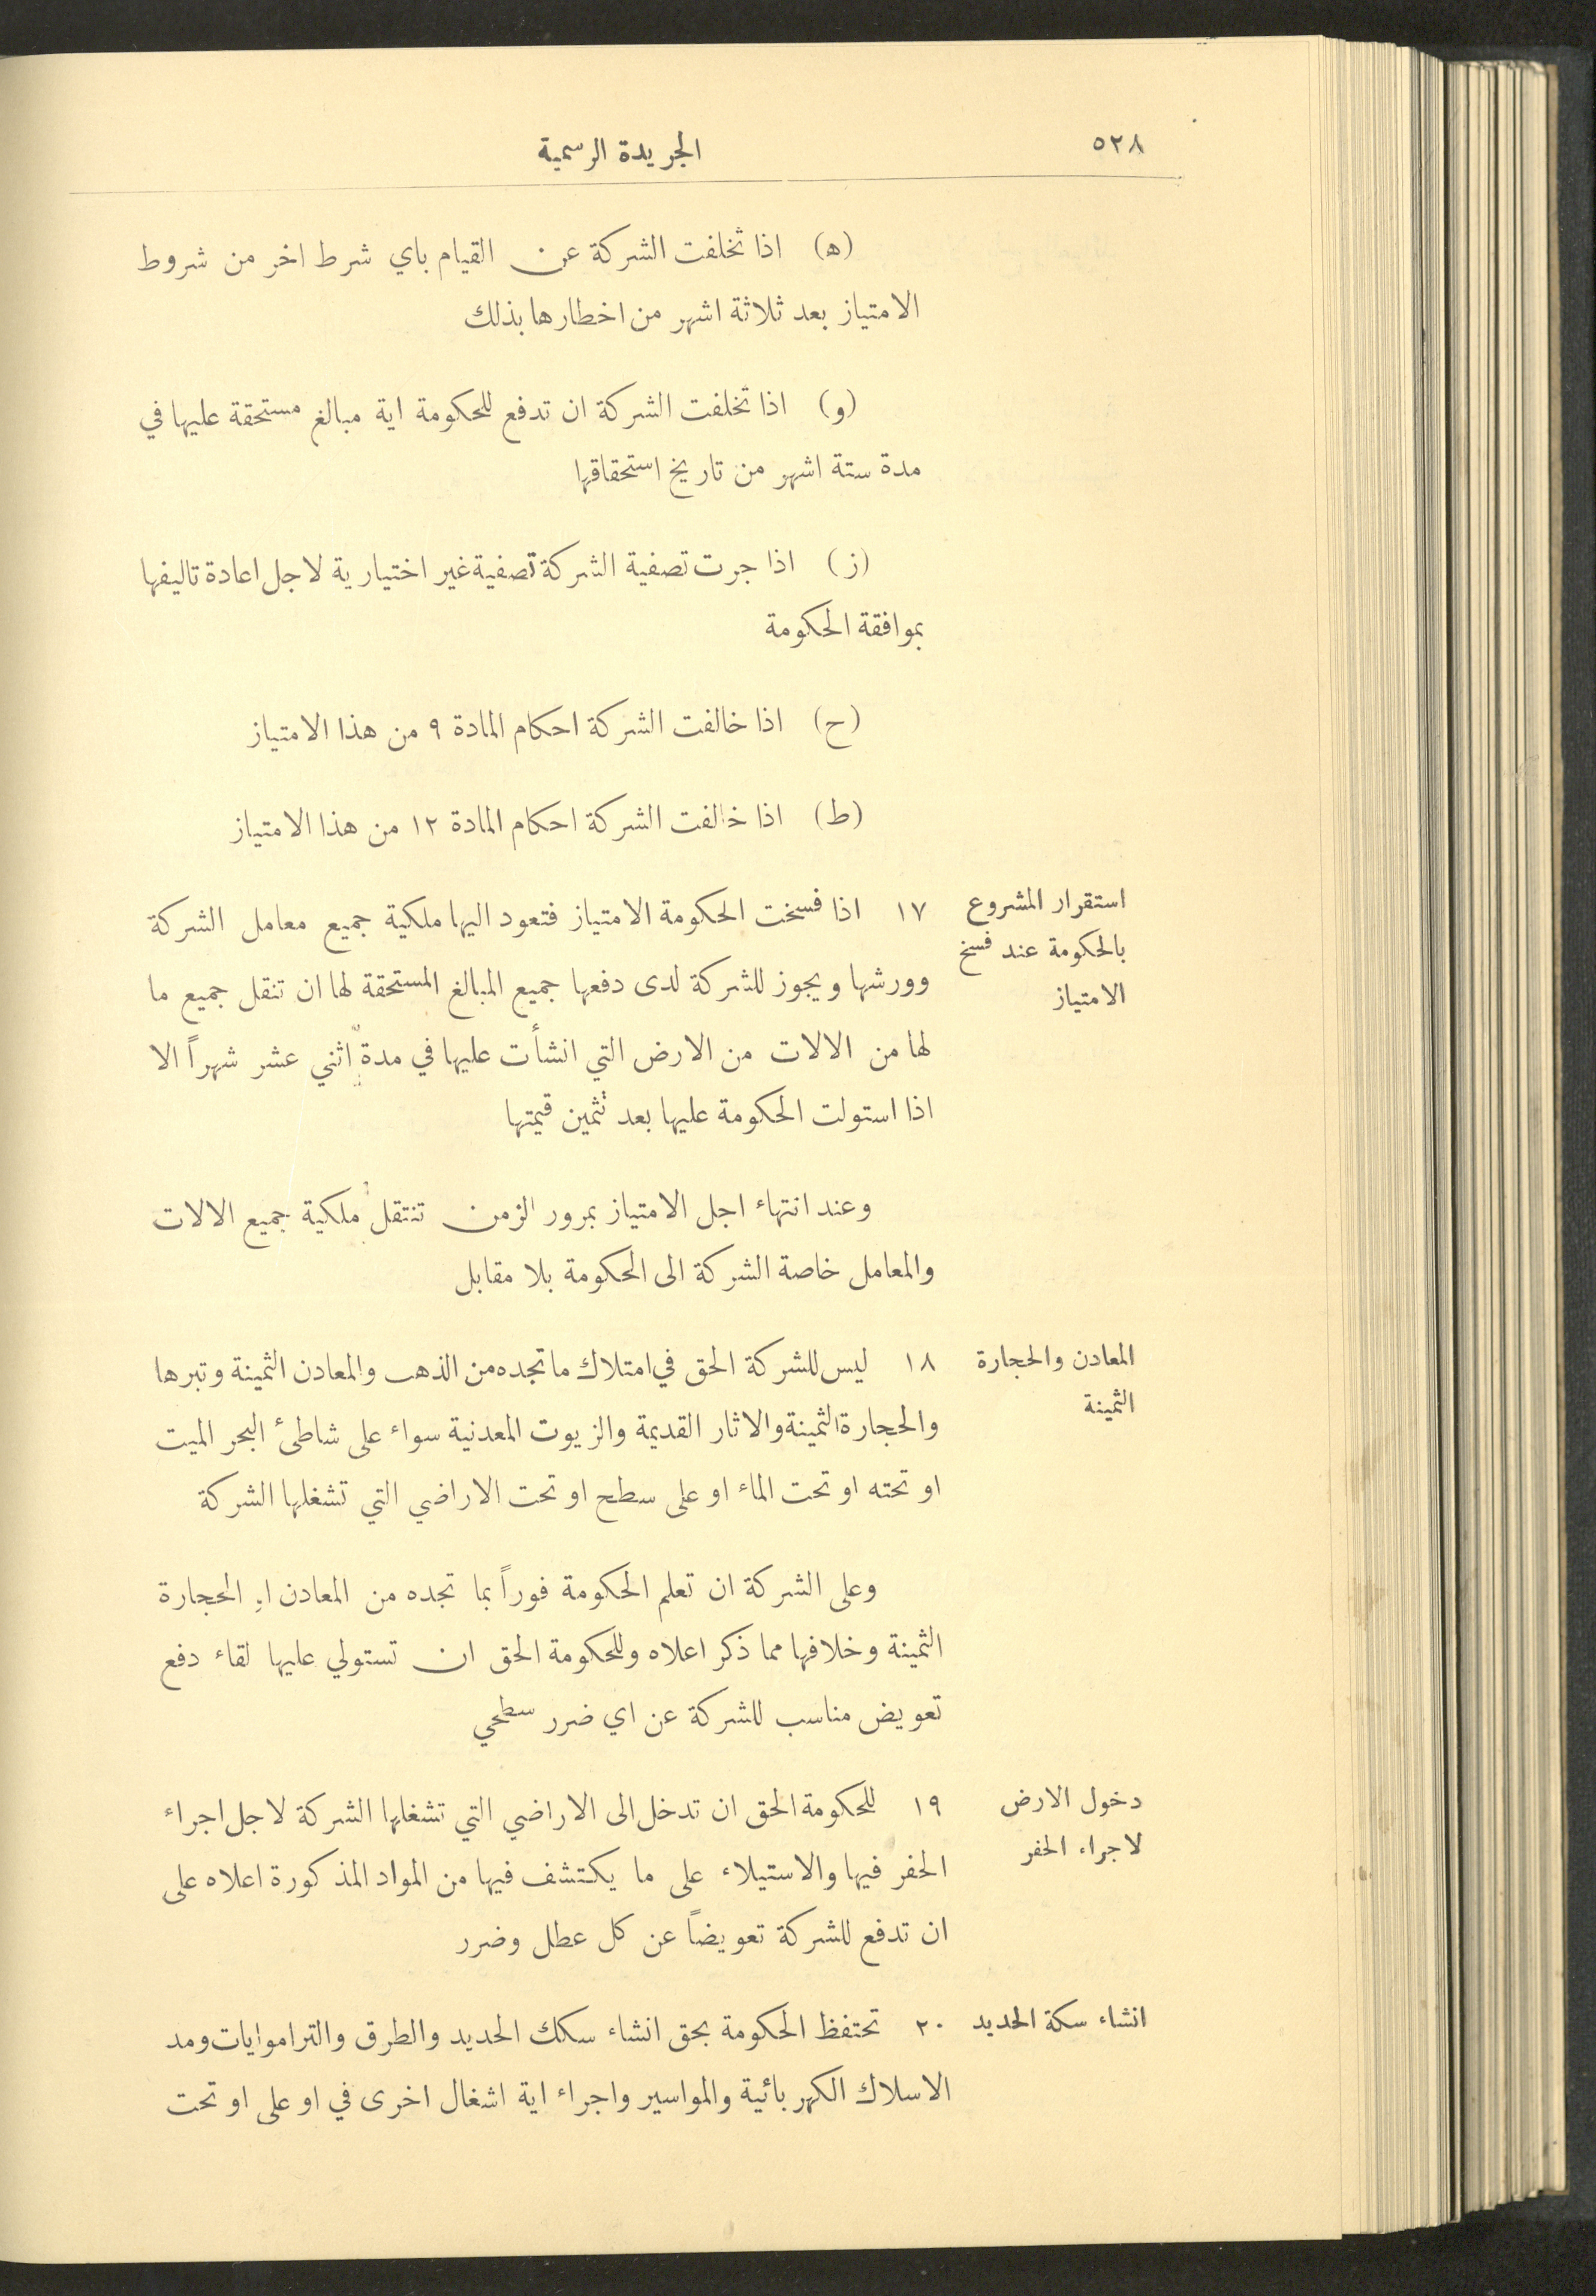 ٥٢٨
الجريدة الرسمية
(ه) اذا تخلفت الشركة عن القيام باي شرط اخر من شروط
الامتياز بعد ثلاثة اشهر من اخطارها بذلك
(و) اذا تخلفت الشركة ان تدفع للحكومة اية مبالغ مستحقة عليها في
مدة ستة اشهر من تاريخ استحقاقها
(ز) اذا جرت تصفية الشركة تصفية غير اختيارية لاجل اعادة تاليفها
بموافقة الحكومة
(ح) اذا خالفت الشركة احكام المادة ٩ من هذا الامتياز
(ط) اذا خالفت الشركة احكام المادة ١٢ من هذا الامتياز
استقرار المشروع
بالحكومة عند فسخ
الامتياز
١٧ اذا فسخت الحكومة الامتياز فتعود اليها ملكية جميع معامل الشركة
وورشها ويجوز للشركة لدى دفعها جميع المبالغ المستحقة لها ان تنقل جميع ما
لها من الالات من الارض التي انشأت عليها في مدة اثني عشر شهراً الا
اذا استولت الحكومة عليها بعد تثمين قيمتها
وعند انتهاء اجل الامتياز بمرور الزمن تنتقل ملكية جميع الالات
والمعامل خاصة الشركة الى الحكومة بلا مقابل
المعادن والحجارة
الثمينة
١٨ ليس للشركة الحق في امتلاك ما تجده من الذهب والمعادن الثمينة وتبرها
والحجارة الثمينة والاثار القديمة والزيوت المعدنية سواء على شاطئ البحر الميت
او تحته او تحت الماء او على سطح او تحت الاراضي التي تشغلها الشركة
وعلى الشركة ان تعلم الحكومة فوراً بما تجده من المعادن او الحجارة
الثمينة وخلافها مما ذكر اعلاه وللحكومة الحق ان تستولي عليها لقاء دفع
تعويض مناسب للشركة عن اي ضرر سطحي
دخول الارض
لاجراء الحفر
١٩ للحكومة الحق ان تدخل الى الاراضي التي تشغلها الشركة لاجل اجراء
الحفر فيها والاستيلاء على ما يكتشف فيها من المواد المذكورة اعلاه على
ان تدفع للشركة تعويضاً عن كل عطل وضرر
انشاء سكة الحديد
٢٠ تحتفظ الحكومة بحق انشاء سكك الحديد والطرق والتراموايات ومد
الاسلاك الكهربائية والمواسير واجراء اية اشغال اخرى في او على او تحت